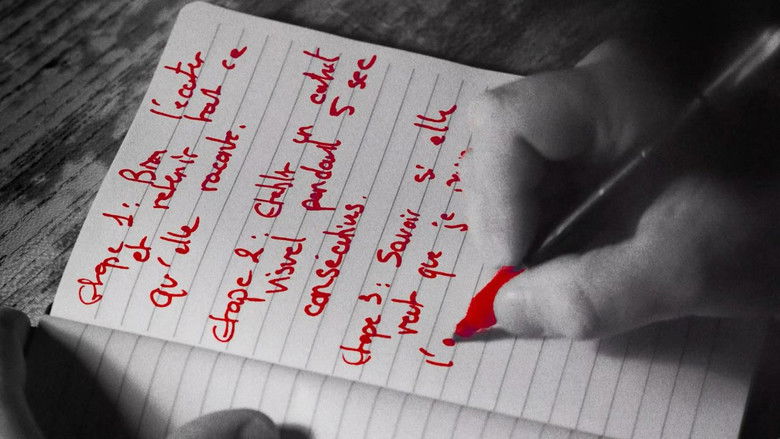 étape 1: Bien l'écouter
et retenir tout ce
qu'elle raconte.
étape 2: établir un contact
visuel pendant 5 sec
consécutives.
étape 3: Savoir si elle
veut que je
l'